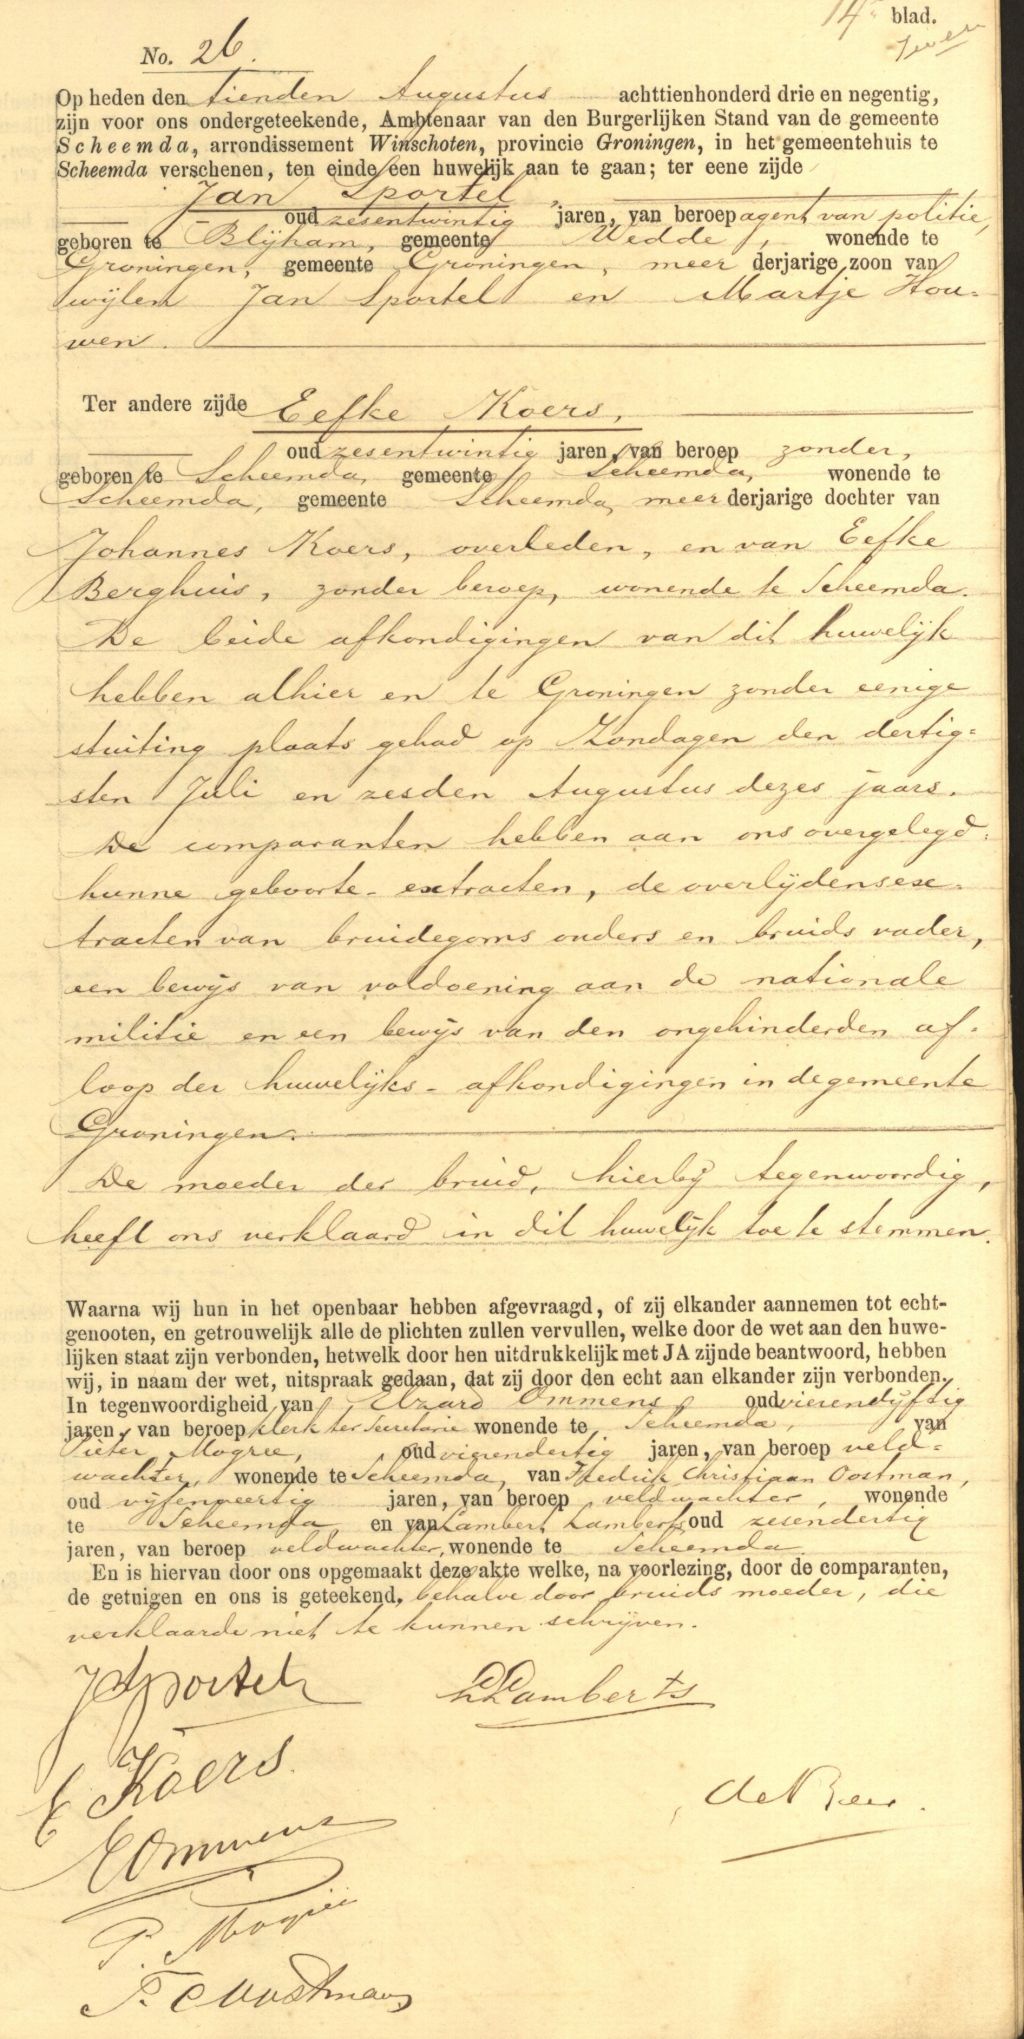 14e blad.
No. 26.
Op heden den tienden Augustus achttienhonderd drie en negentig,
zijn voor ons ondergeteekende, Ambtenaar van den Burgerlijken Stand van de gemeente
Scheemda, arrondissement Winschoten, provincie Groningen, in het gemeentehuis te
Scheemda verschenen, ten einde een huwelijk aan te gaan; ter eene zijde
Jan Sportel
oud zesentwintig jaren, van beroep agent van politie,
geboren te Blijham, gemeente Wedde, wonende te
Groningen, gemeente Groningen, meerderjarige zoon van
wijlen Jan Sportel en Martje Hou-
wen.
Ter andere zijde Eefke Koers,
oud zesentwintig jaren, van beroep zonder,
geboren te Scheemda, gemeente Scheemda, wonende te
Scheemda, gemeente Scheemda, meerderjarige dochter van
Johannes Koers, overleden, en van Eefke
Berghuis, zonder beroep, wonende te Scheemda.
De beide afkondigingen van dit huwelijk
hebben alhier en te Groningen zonder eenige
stuiting plaats gehad op Zondagen den dertig-
sten Juli en zesden Augustus dezes jaars.
De comparanten hebben aan ons overgelegd:
hunne geboorte-extracten, de overlijdensex-
tracten van bruidegoms ouders en bruids vader,
een bewijs van voldoening aan de nationale
militie en een bewijs van den ongehinderden af-
loop der huwelijks-afkondigingen in de gemeente
Groningen.
De moeder der bruid, hierbij tegenwoordig,
heeft ons verklaard in dit huwelijk toe te stemmen.
Waarna wij hun in het openbaar hebben afgevraagd, of zij elkander aannemen tot echt-
genooten, en getrouwelijk alle de plichten zullen vervullen, welke door de wet aan den huwe-
lijken staat zijn verbonden, hetwelk door hen uitdrukkelijk met JA zijnde beantwoord, hebben
wij, in naam der wet, uitspraak gedaan, dat zij door den echt aan elkander zijn verbonden.
In tegenwoordigheid van Edzard Ommens, oud vierendijftig
jaren, van beroep klerk ter Secretarie wonende te Scheemda, van
Pieter Mogree, oud vierendertig jaren, van beroep veld-
wachter, wonende te Scheemda, van Fredrik Christiaan Oostman,
oud vijfenveertig jaren, van beroep veldwachter, wonende
te Scheemda en van Lambert Lamberts, oud zesendertig
jaren, van beroep veldwachter, wonende te Scheemda.
En is hiervan door ons opgemaakt deze akte welke, na voorlezing, door de comparanten,
de getuigen en ons is geteekend, behalve door bruids moeder, die
verklaarde niet te kunnen schrijven.
J Sportel
L Lamberts
E Koers.
E Ommens
P. Mogree
F. C Oostman